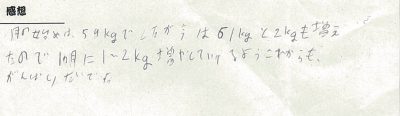 感想
月の始めは、59kgでしたが今は61kgと2kgも増え
たので1ヶ月に1〜2kg増やしていけるようこれからも、
がんばりたいです。